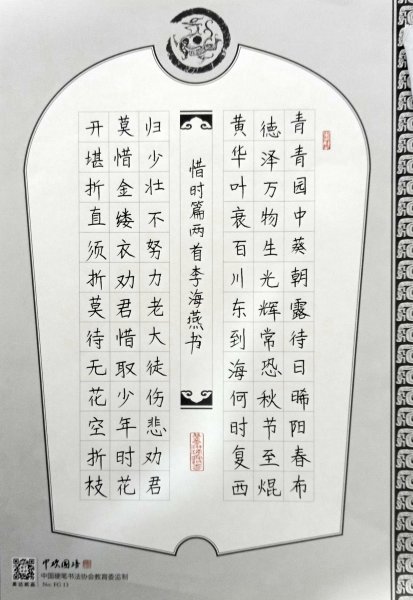 青青园中葵朝露待日晞阳春布
德泽万物生光辉常恐秋节至焜
黄华叶衰百川东到海何时复西
惜时篇两首李海燕书
归少壮不努力老大徒伤悲劝君
莫惜金缕衣劝君惜取少年时花
开堪折直须折莫待无花空折枝
中国硬笔书法协会教育委监制
No: FG 13